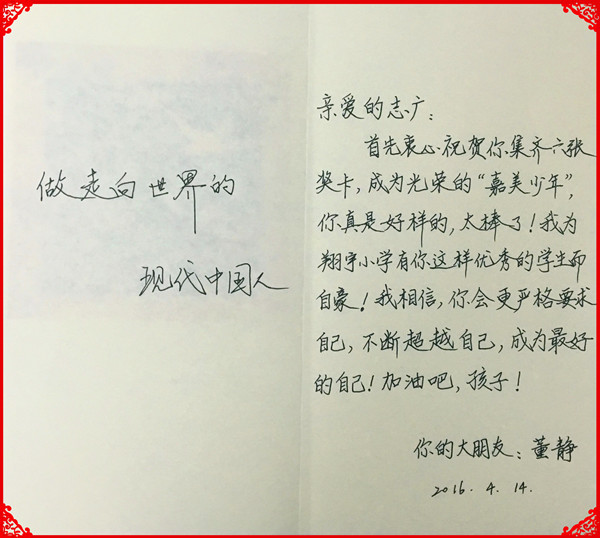 做走向世界的
现代中国人
亲爱的志广：
首先衷心祝贺你集齐六张
奖卡，成为光荣的“嘉美少年”，
你真是好样的，太棒了！我为
翔宇小学有你这样优秀的学生而
自豪！我相信，你会更严格要求
自己，不断超越自己，成为最好
的自己！加油吧，孩子！
你的大朋友：董静
2016.4.14.